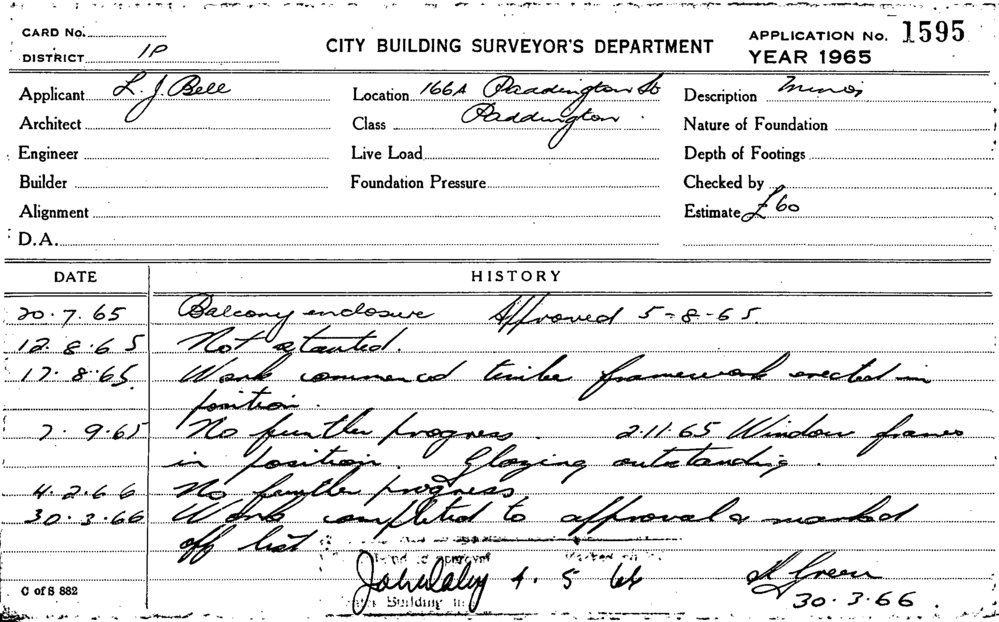 CARD No.
CITY BUILDING SURVEYOR'S DEPARTMENT
APPLICATION No. 1595
DISTRICT 1P
YEAR 1965
Applicant L. J. Bell
Location 166A Paddington St
Paddington
Description Minor
Architect
Class
Nature of Foundation
Engineer
Live Load
Depth of Footings
Builder
Foundation Pressure
Checked by
Alignment
Estimate £60
D.A.
DATE HISTORY
20.7.65 Balcony enclosure Approved 5-8-65.
12.8.65 Not started.
17.8.65. Work commenced timber framework erected in
position.
7.9.65 No further progress. 2.11.65 Window frames
in position. Glazing outstanding.
4.2.66 No further progress
30.3.66 Work completed to approval & marked
off list
John Daly 4.5.66
Green
30.3.66.
Building
C of S 882